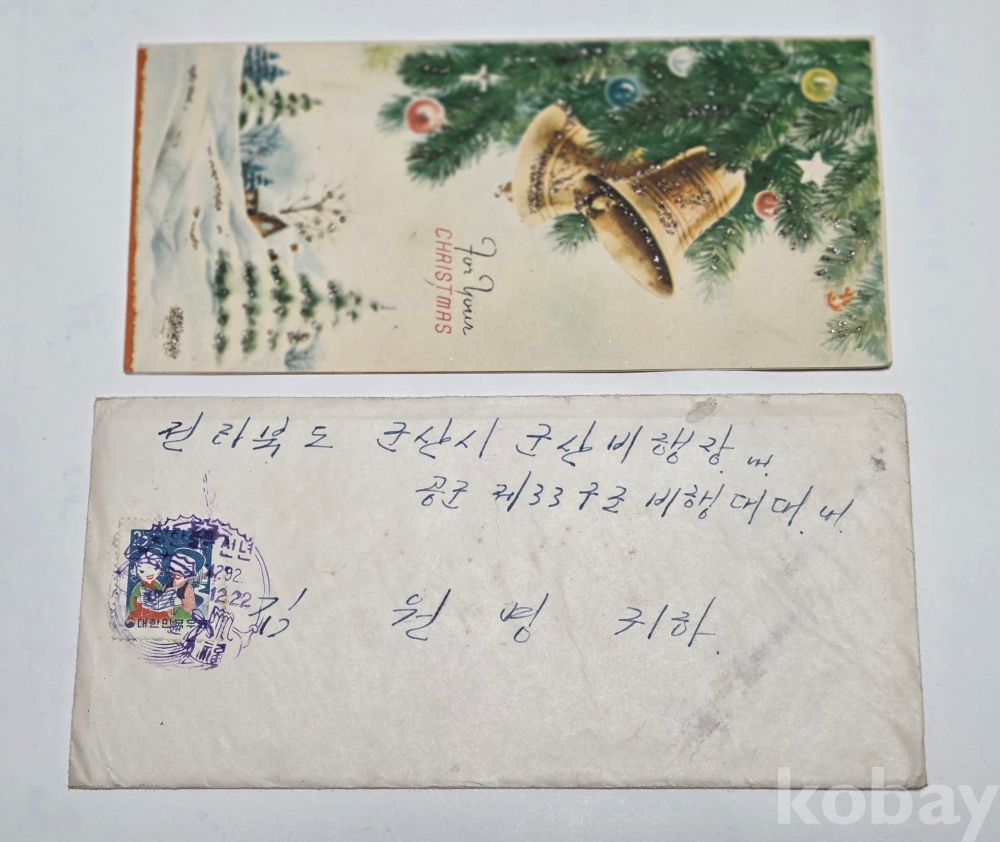 For Your
CHRISTMAS
전라북도 군산시 군산비행장 내.
공군 제33구조 비행대대 내.
신년
4292.
12.22
대한민국우
김 원 명 귀하
kobay